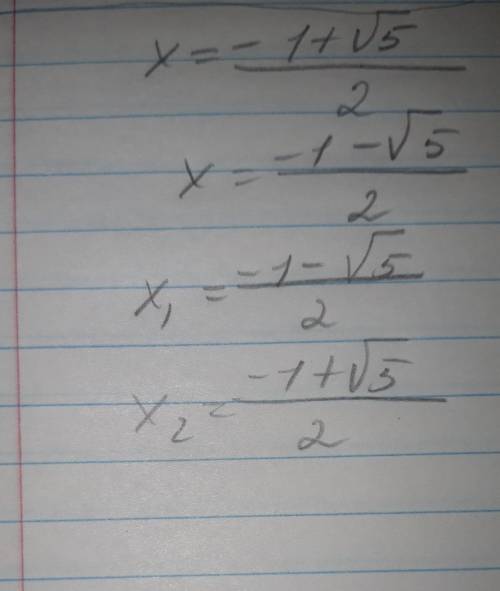 x = (-1+√5)/2
x = (-1-√5)/2
x₁ = (-1-√5)/2
x₂ = (-1+√5)/2